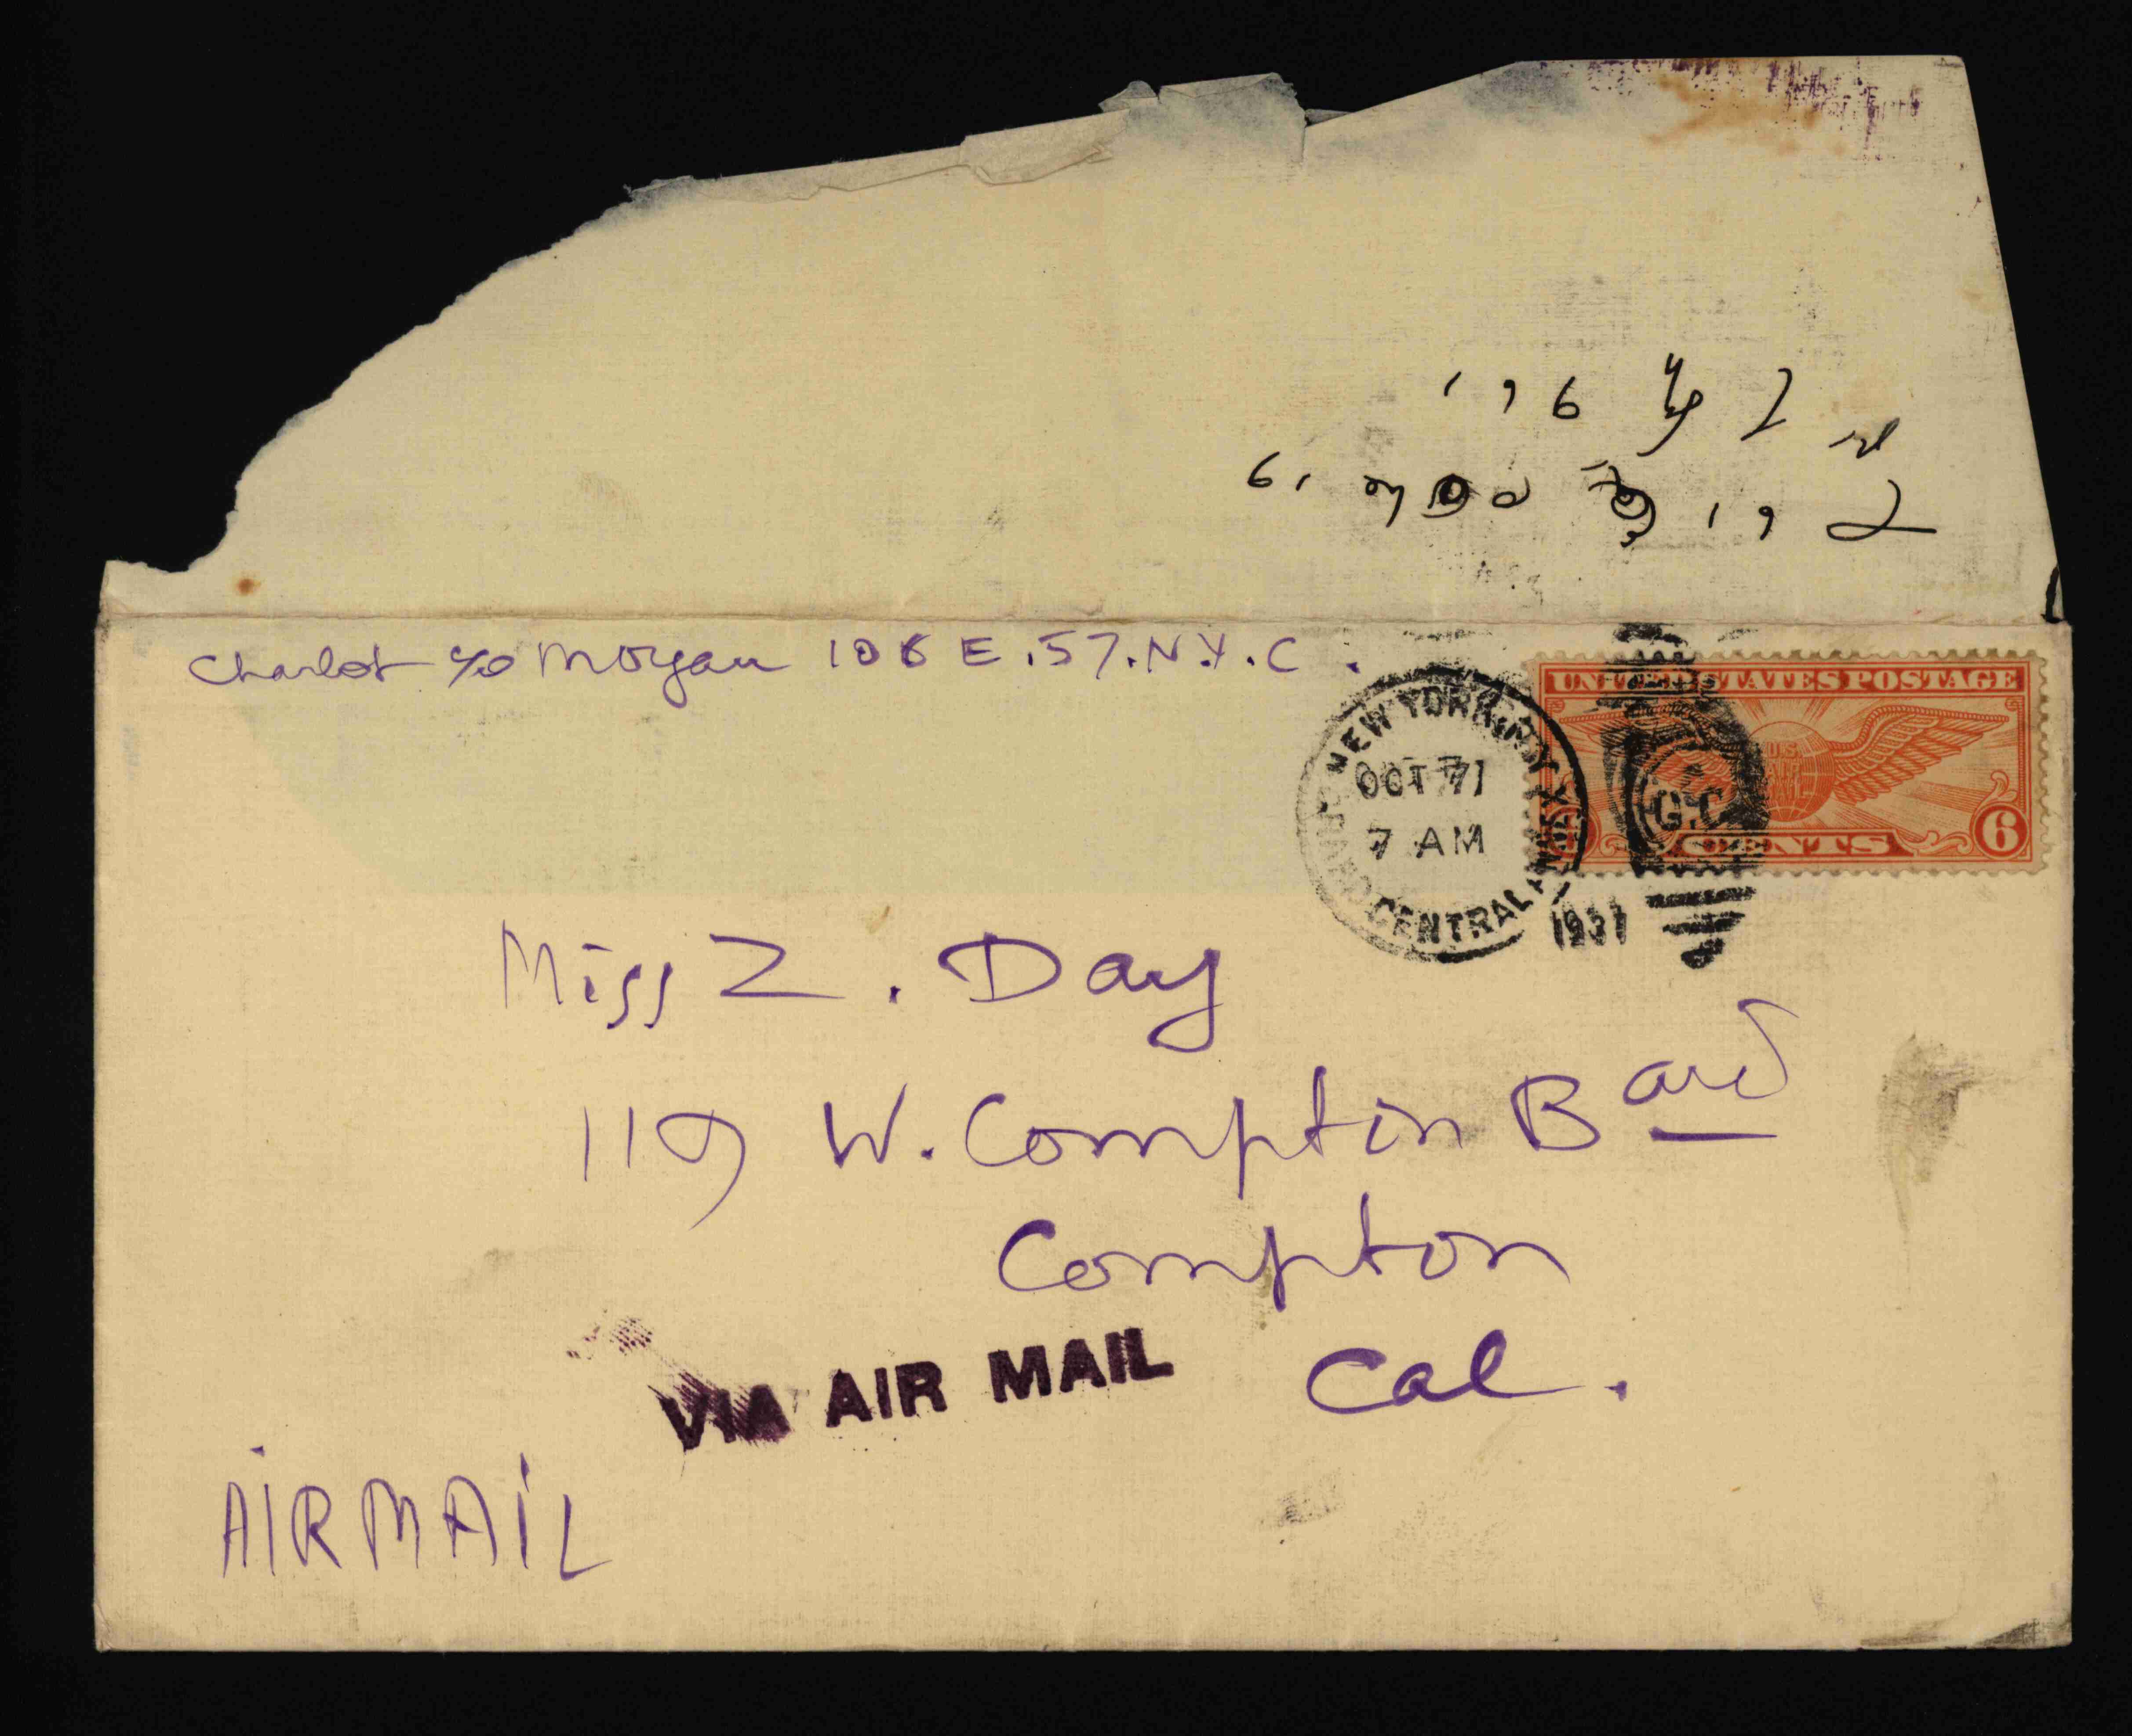 Charlot c/o Morgan 106 E.57.N.Y.C.
UNITED STATES POSTAGE
U.S. AIR MAIL
CENTS 6
NEW YORK, N.Y.
OCT 7
7 AM
GRAND CENTRAL ANNEX
1937
G.C.
Miss Z. Day
119 W. Compton B ard
Compton
Cal.
VIA AIR MAIL
AIRMAIL